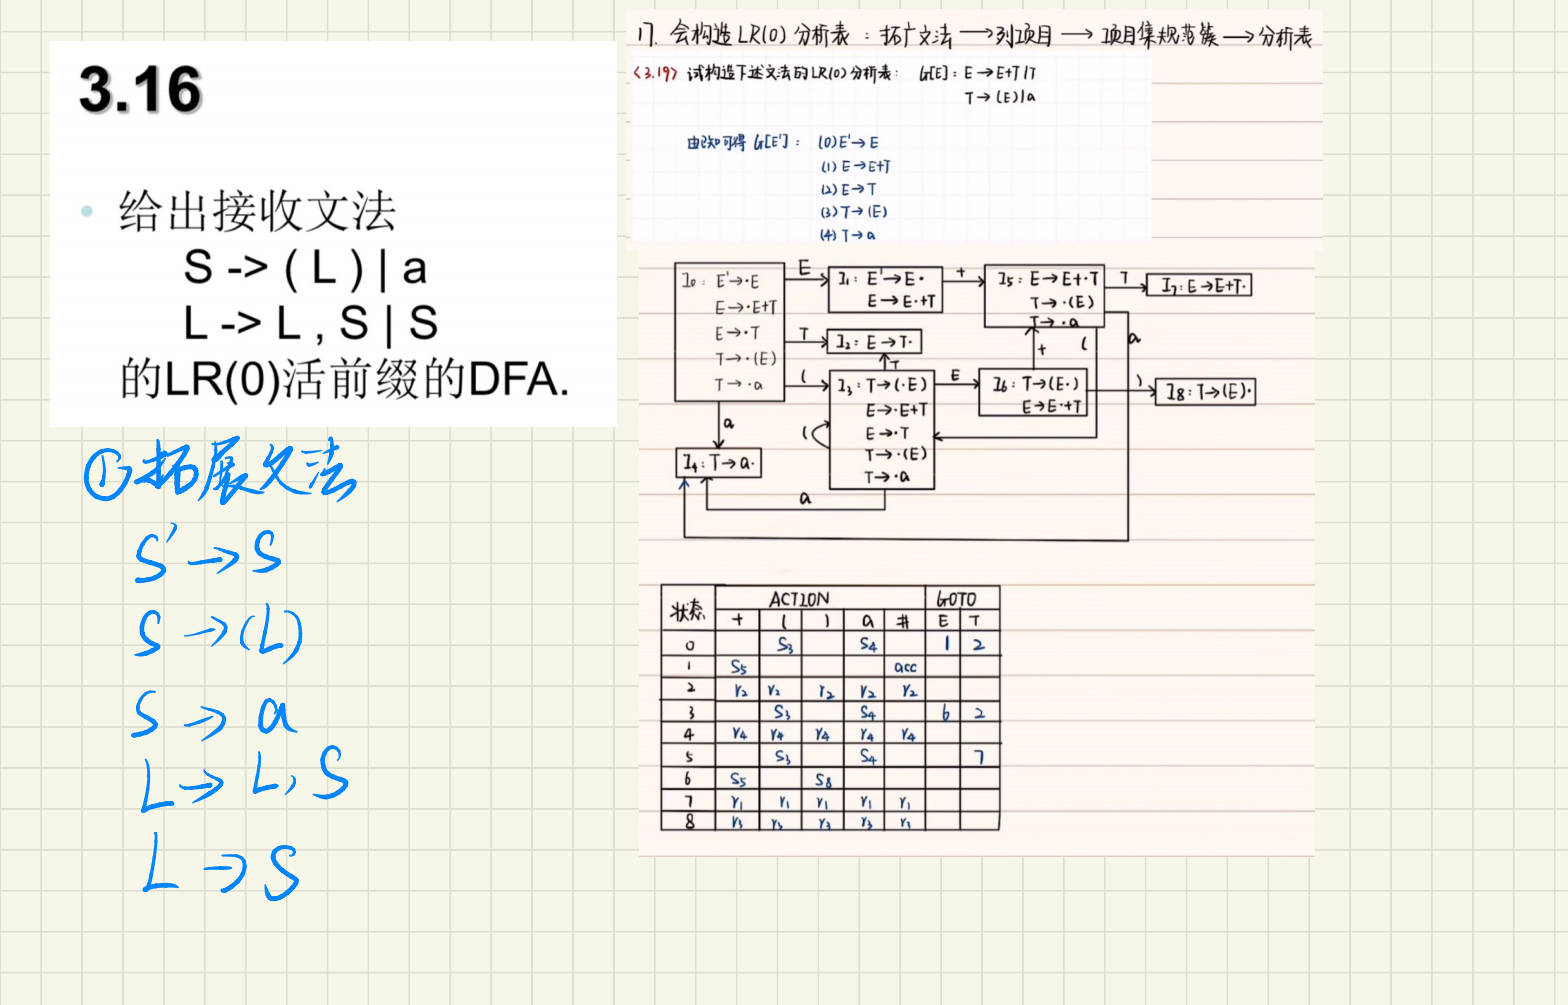 3.16
给出接收文法
S -> ( L ) | a
L -> L , S | S
的LR(0)活前缀的DFA.
①拓展文法
S'→S
S→(L)
S→a
L→L,S
L→S
17. 会构造LR(0)分析表:拓广文法→列项目→项目集规范簇→分析表
<3.19> 试构造下述文法的LR(0)分析表: G[E]: E→E+T|T
T→(E)|a
由已知可得 G[E']: (0) E'→E
(1) E→E+T
(2) E→T
(3) T→(E)
(4) T→a
I0: E'→·E
E→·E+T
E→·T
T→·(E)
T→·a
E
I1: E'→E·
E→E·+T
+
I5: E→E+·T
T→·(E)
T→·a
T
I7: E→E+T·
T
I2: E→T·
T
+
(
a
(
I3: T→(·E)
E→·E+T
E→·T
T→·(E)
T→·a
E
I6: T→(E·)
E→E·+T
)
I8: T→(E)·
a
(
I4: T→a·
a
状态 ACTION GOTO
+ ( ) a # E T
0 S3 S4 1 2
1 S5 acc
2 r2 r2 r2 r2 r2
3 S3 S4 6 2
4 r4 r4 r4 r4 r4
5 S3 S4 7
6 S5 S8
7 r1 r1 r1 r1 r1
8 r3 r3 r3 r3 r3